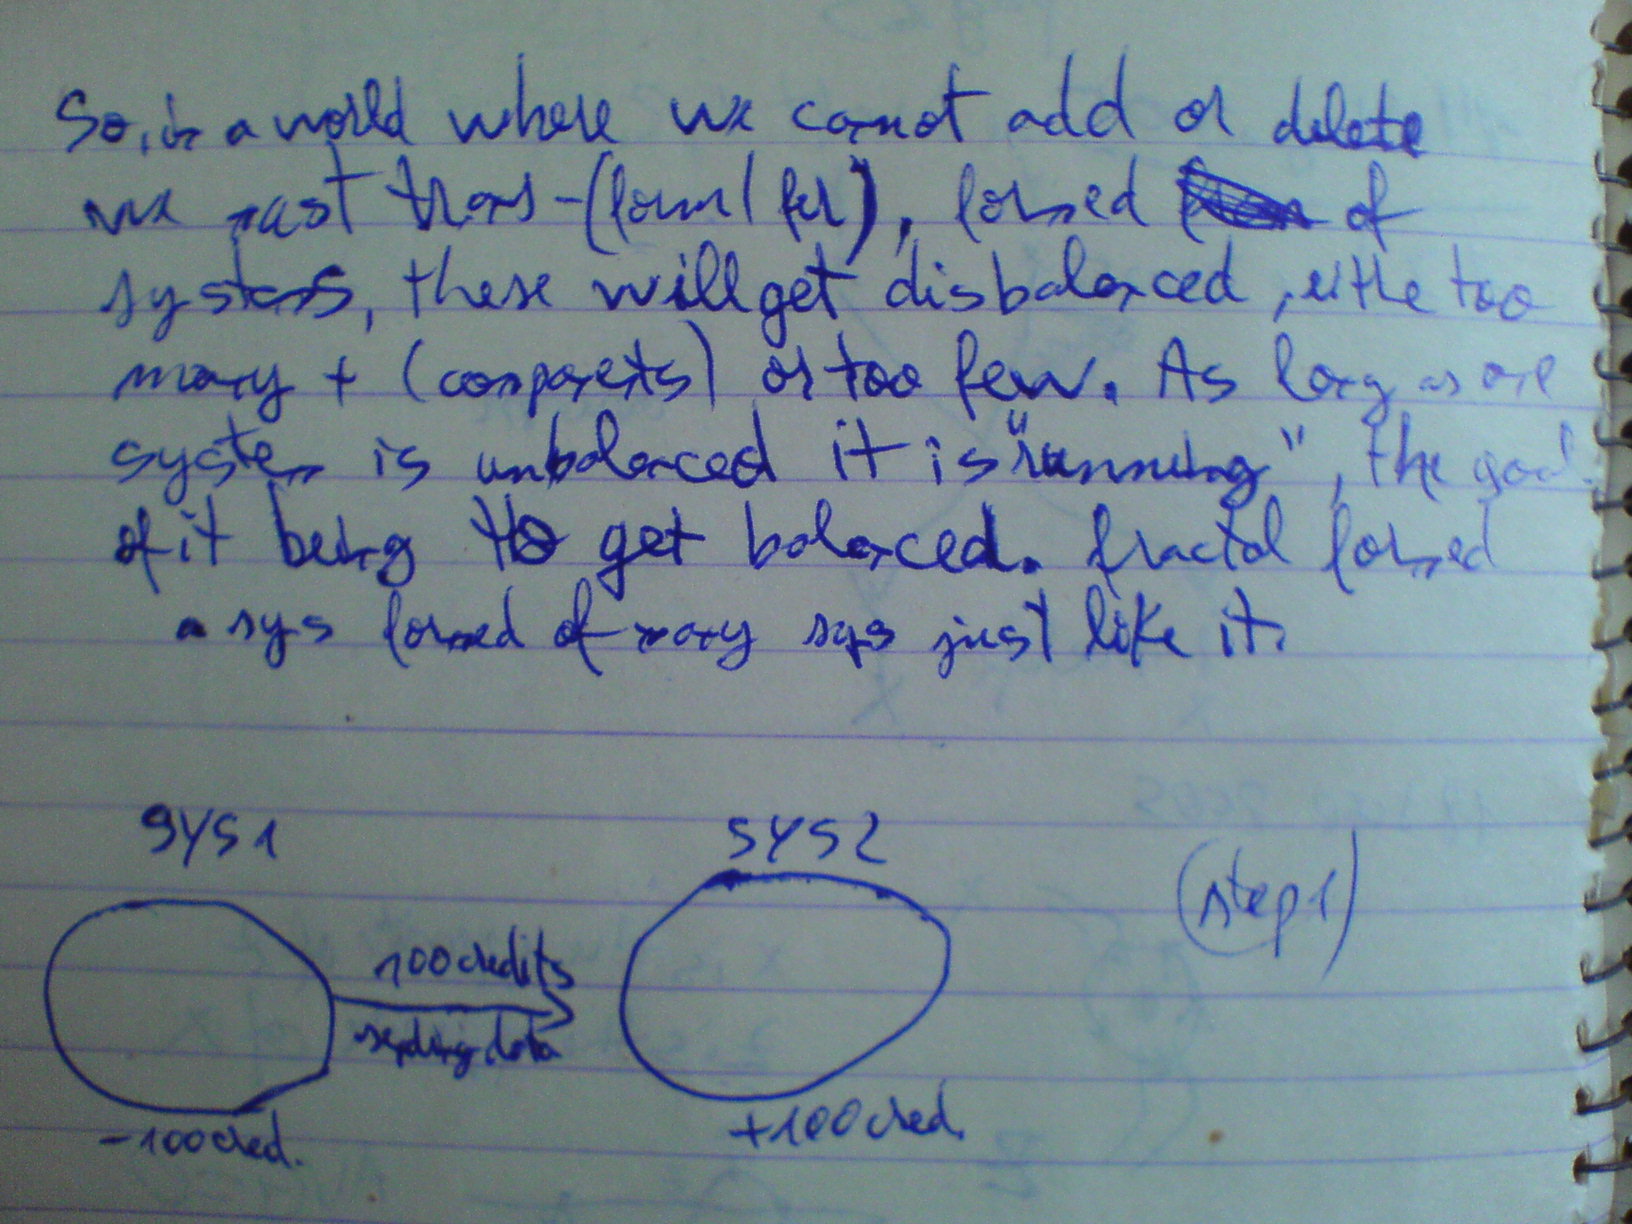 So, in a world where we cannot add or delete
we must trans-(form/fer), formed of
systems, these will get disbalanced, eithe too
many + (components) or too few. As long as one
system is unbalanced it is "running", the goal
of it being to get balanced. fractal formed
a sys formed of many sys just like it.
SYS1 SYS2
(step 1)
100 credits
sending data
-100 cred.
+100 cred.